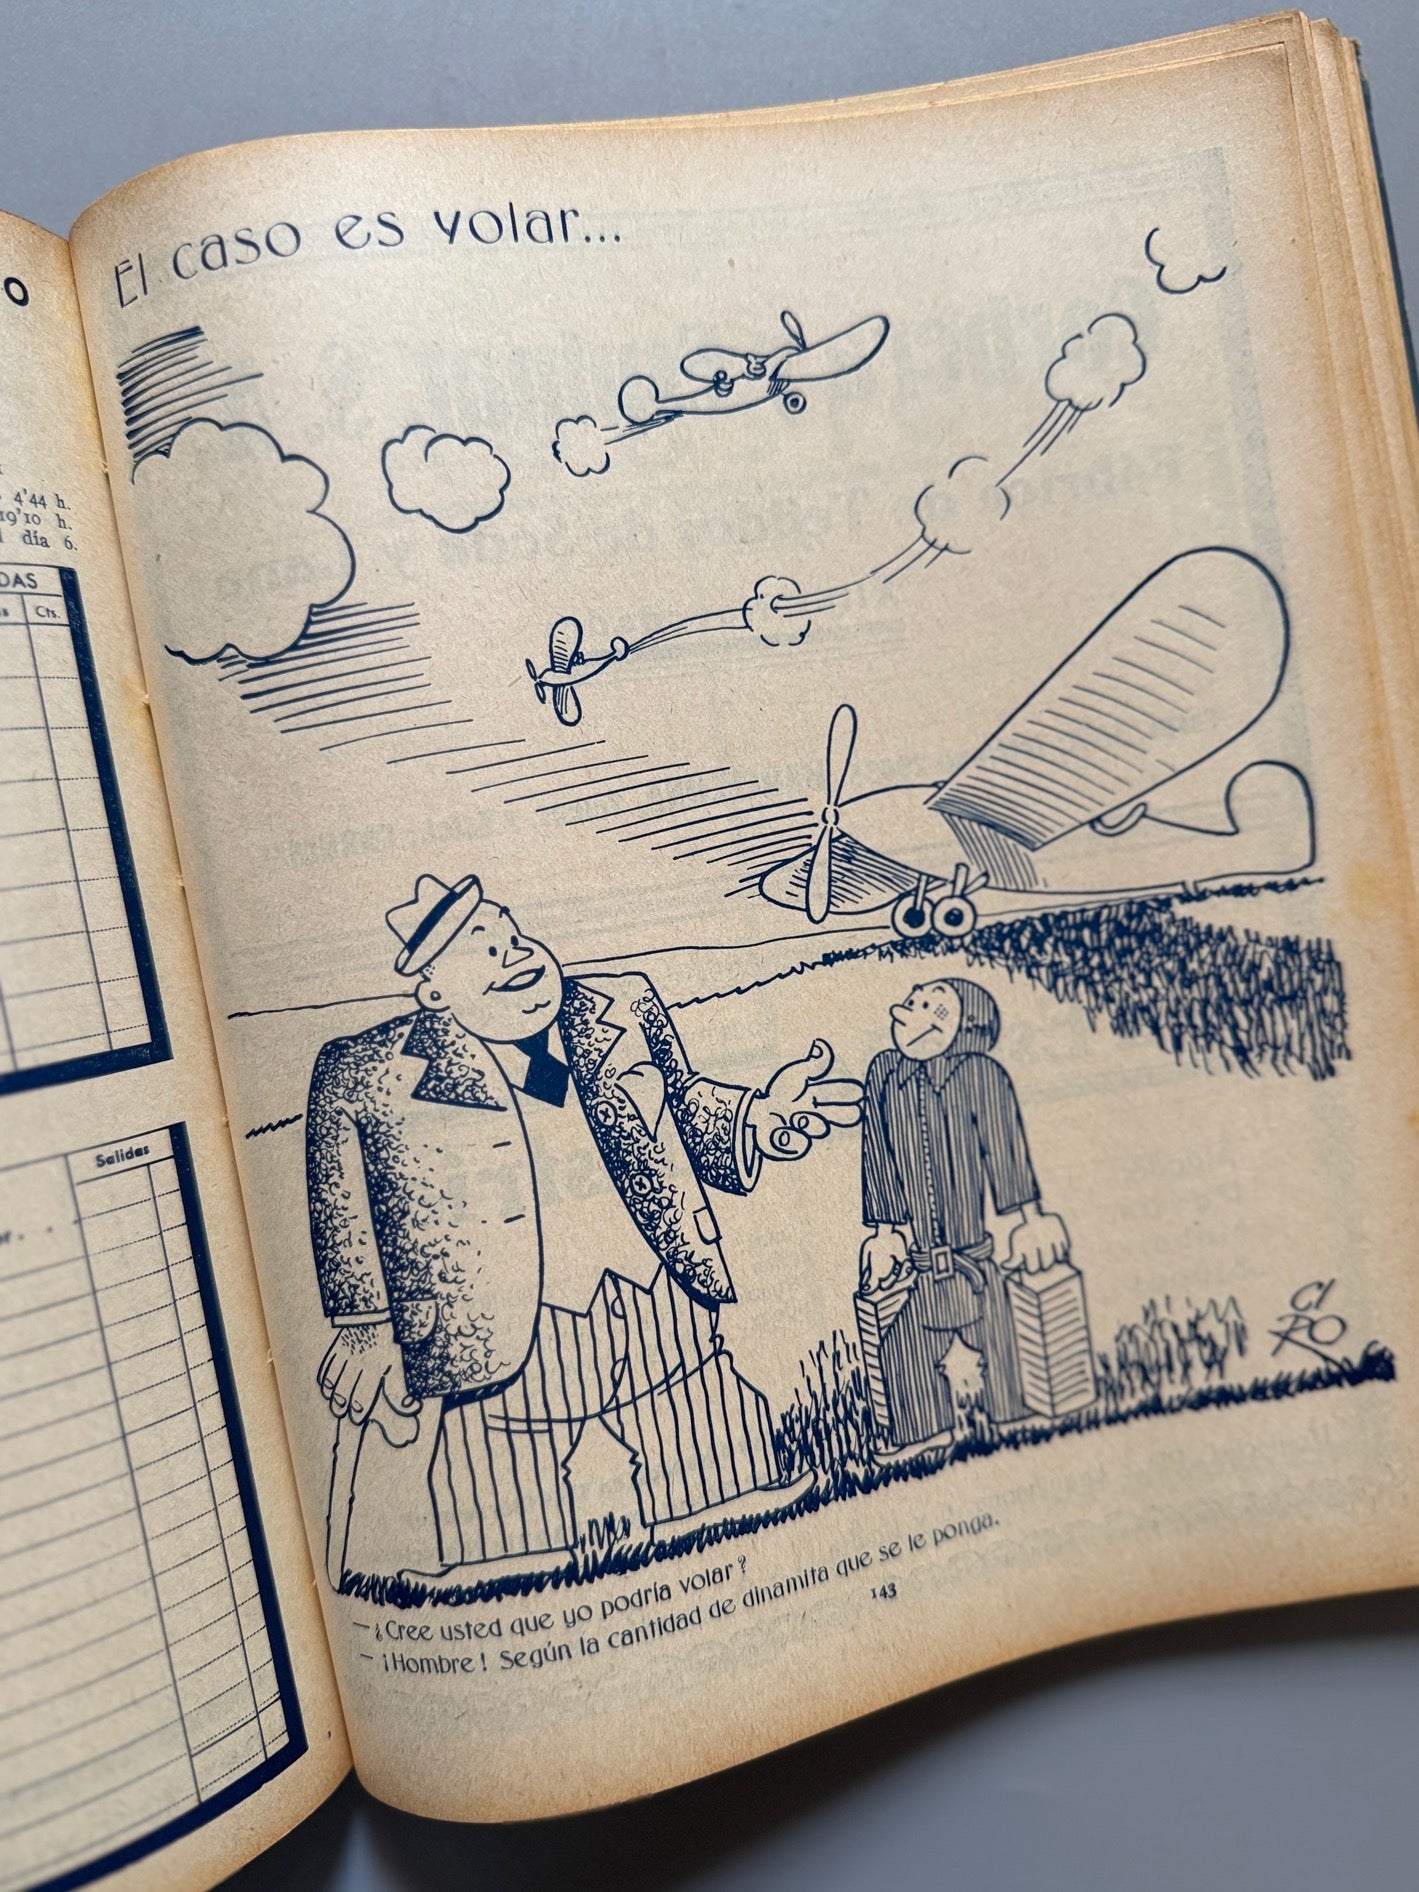 O
4'44 h.
19'10 h.
día 6.
DAS
Cts.
Salidas
El caso es volar...
CIRO
— ¿Cree usted que yo podría volar?
— ¡Hombre! Según la cantidad de dinamita que se le ponga.
143